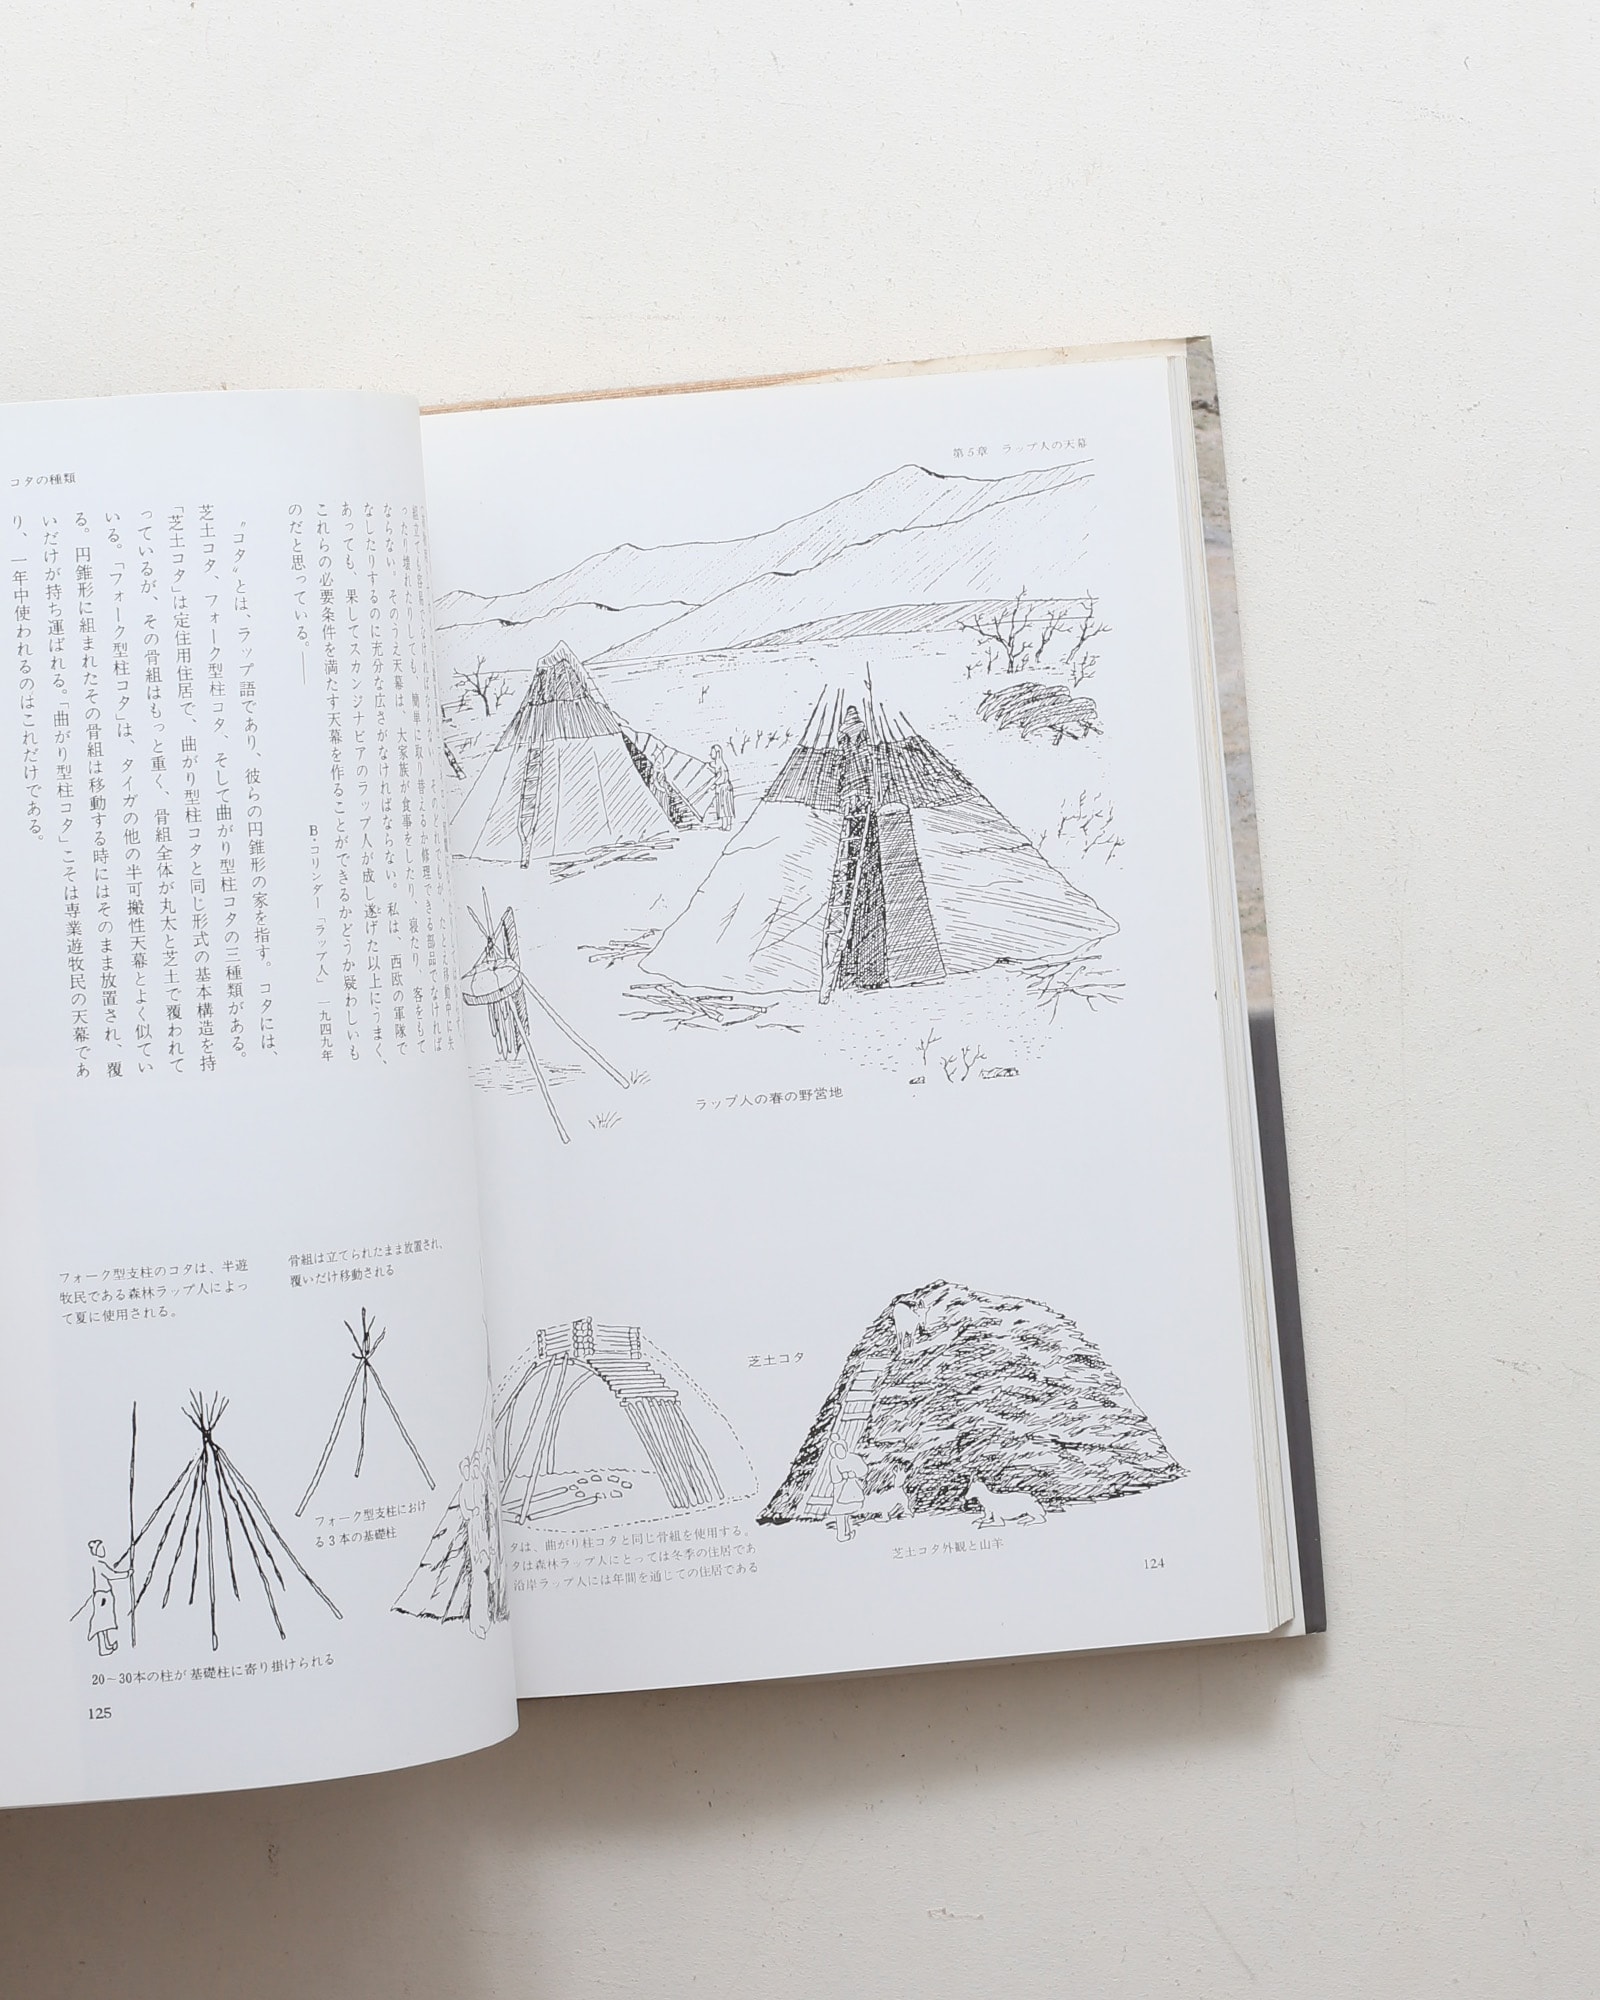 第5章 ラップ人の天幕
ラップ人の春の野営地
芝土コタ
タは、曲がり柱コタと同じ骨組を使用する。
タは森林ラップ人にとっては冬季の住居であ
沿岸ラップ人には年間を通じての住居である
芝土コタ外観と山羊
124
コタの種類
組立ても容易でなければならない。
ったり壊れたりしても、簡単に取り替えるか修理できる部品でなければ
ならない。そのうえ天幕は、大家族が食事をしたり、寝たり、客をもて
なしたりするのに充分な広さがなければならない。私は、西欧の軍隊で
あっても、果してスカンジナビアのラップ人が成し遂げた以上にうまく、
これらの必要条件を満たす天幕を作ることができるかどうか疑わしいも
のだと思っている。――
B・コリンダー「ラップ人」 一九四九年
〝コタ〟とは、ラップ語であり、彼らの円錐形の家を指す。コタには、
芝土コタ、フォーク型柱コタ、そして曲がり型柱コタの三種類がある。
「芝土コタ」は定住用住居で、曲がり型柱コタと同じ形式の基本構造を持
っているが、その骨組はもっと重く、骨組全体が丸太と芝土で覆われて
いる。「フォーク型柱コタ」は、タイガの他の半可搬性天幕とよく似てい
る。円錐形に組まれたその骨組は移動する時にはそのまま放置され、覆
いだけが持ち運ばれる。「曲がり型柱コタ」こそは専業遊牧民の天幕であ
り、一年中使われるのはこれだけである。
フォーク型支柱のコタは、半遊
牧民である森林ラップ人によっ
て夏に使用される。
骨組は立てられたまま放置され、
覆いだけ移動される
フォーク型支柱におけ
る3本の基礎柱
20～30本の柱が基礎柱に寄り掛けられる
125